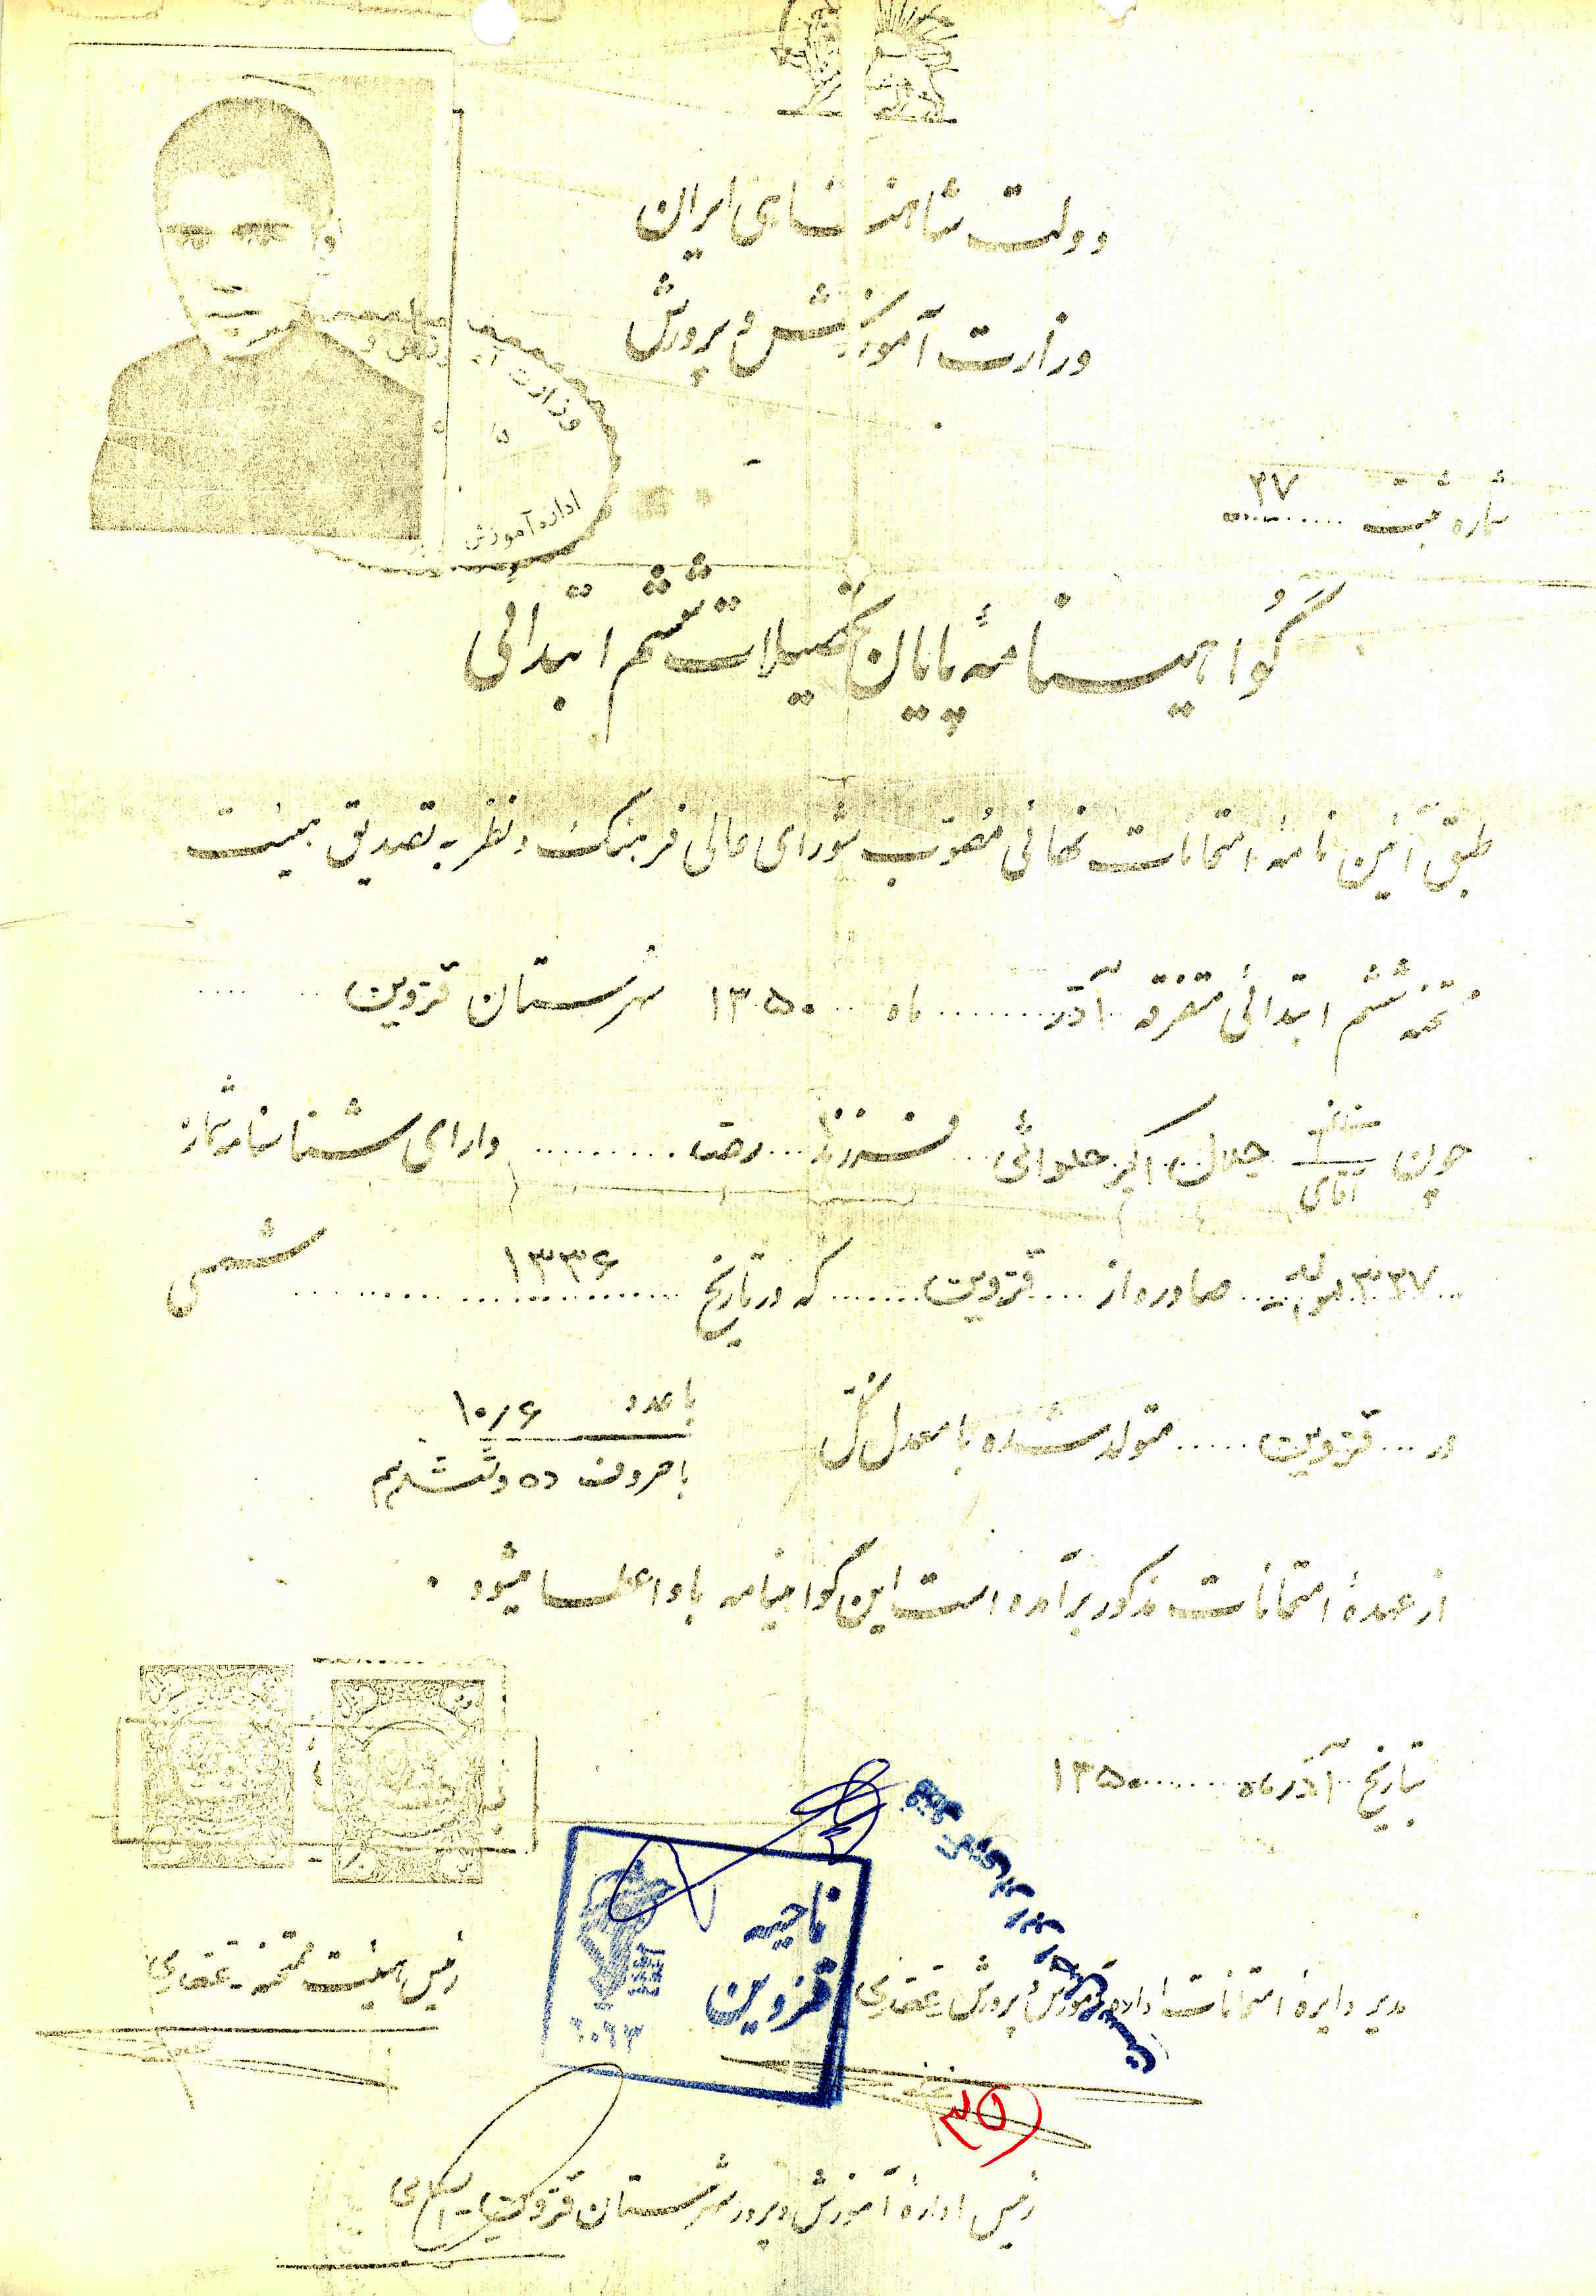 دولت شاهنشاهی ایران
وزارت آموزش و پرورش
وزارت آموزش و
اداره آموزش
شماره ثبت ۳۷
گواهینامهٔ پایان تحصیلات ششم ابتدائی
طبق آئین نامهٔ امتحانات نهائی مصوّب شورای عالی فرهنگ و نظر به تصدیق هیئت
ممتحنه ششم ابتدائی متفرقه آذر ماه ۱۳۵۰ شهرستان قزوین
چون آقای جلال اکبر حلوائی فرزند دارای شناسنامه شماره
۳۳۷ صادره از قزوین که در تاریخ ۱۳۳۶ شمسی
در قزوین متولد شده با معدل کل
با عدد ۱۰/۶
با حروف ده و ششدهم
از عهدهٔ امتحانات مذکور برآمده است این گواهینامه باو اعطا میشود .
بتاریخ آذر ماه ۱۳۵۰
ناحیه
قزوین
رئیس هیئت ممتحنه
مدیر دایره امتحانات اداره آموزش و پرورش
۲۵
رئیس ادارهٔ آموزش و پرورش شهرستان قزوین